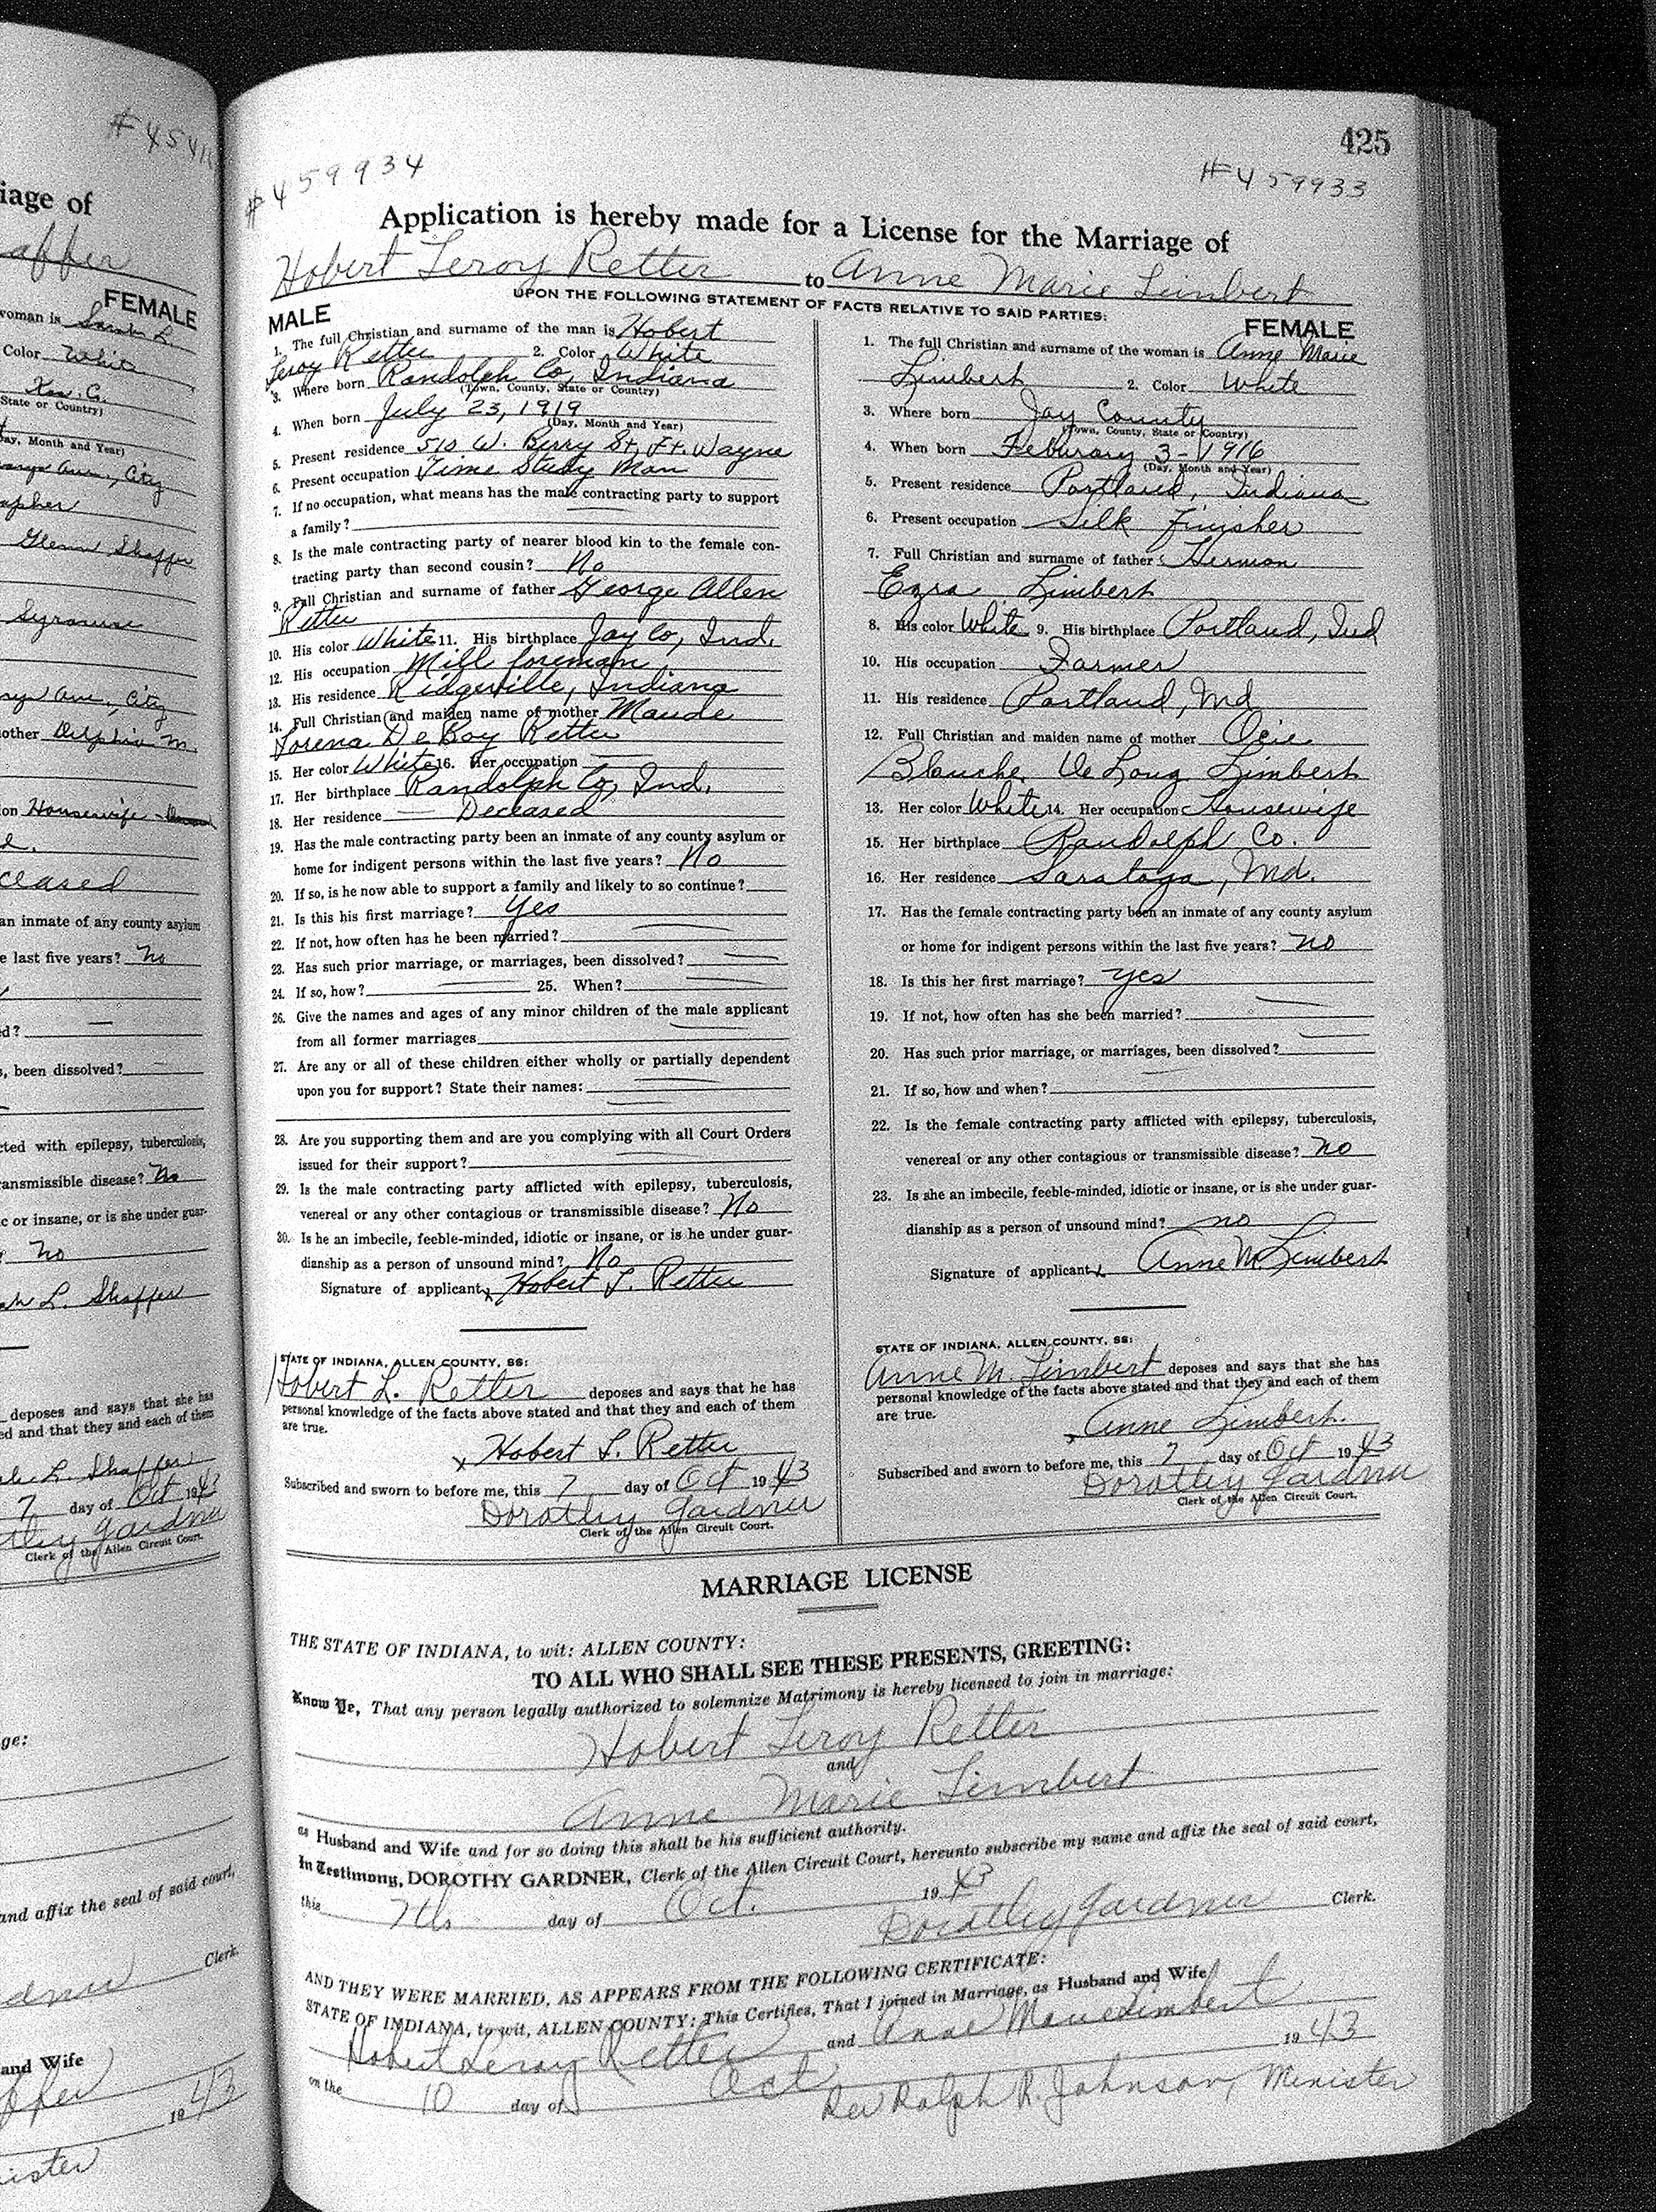 #4541
iage of
affer
FEMALE
woman is Sarah L.
Color White
State or Country)
ay, Month and Year)
Ave., City
apher
Glenn Shaffer
Syracuse
Ave., City
other Delphia M.
on Housewife -
d.
ceased
an inmate of any county asylum
e last five years? No
ed?
s, been dissolved?
cted with epilepsy, tuberculosis,
ansmissible disease? No
c or insane, or is she under guar-
No
ah L. Shaffer
deposes and says that she has
ed and that they and each of them
L. Shaffer
7 day of Oct 1943
thy Gardner
Clerk of the Allen Circuit Court.
ge:
and affix the seal of said court,
Clerk.
dner
and Wife
ffer
1943
ister
425
#459934
#459933
Application is hereby made for a License for the Marriage of
Hobert Leroy Retter to Anne Marie Limbert
UPON THE FOLLOWING STATEMENT OF FACTS RELATIVE TO SAID PARTIES:
MALE
1. The full Christian and surname of the man is Hobert
Leroy Retter 2. Color White
3. Where born Randolph Co, Indiana
(Town, County, State or Country)
4. When born July 23, 1919
(Day, Month and Year)
5. Present residence 510 W. Berry St, Ft. Wayne
6. Present occupation Time Study Man
7. If no occupation, what means has the male contracting party to support
a family?
8. Is the male contracting party of nearer blood kin to the female con-
tracting party than second cousin? No
9. Full Christian and surname of father George Allen
Retter
10. His color White 11. His birthplace Jay Co, Ind.
12. His occupation Mill foreman
13. His residence Ridgeville, Indiana
14. Full Christian and maiden name of mother Maude
Lorena DeBoy Retter
15. Her color White 16. Her occupation —
17. Her birthplace Randolph Co, Ind.
18. Her residence — Deceased
19. Has the male contracting party been an inmate of any county asylum or
home for indigent persons within the last five years? No
20. If so, is he now able to support a family and likely to so continue?
21. Is this his first marriage? Yes
22. If not, how often has he been married?
23. Has such prior marriage, or marriages, been dissolved?
24. If so, how? 25. When?
26. Give the names and ages of any minor children of the male applicant
from all former marriages
27. Are any or all of these children either wholly or partially dependent
upon you for support? State their names:
28. Are you supporting them and are you complying with all Court Orders
issued for their support?
29. Is the male contracting party afflicted with epilepsy, tuberculosis,
venereal or any other contagious or transmissible disease? No
30. Is he an imbecile, feeble-minded, idiotic or insane, or is he under guar-
dianship as a person of unsound mind? No
Signature of applicant x Hobert L. Retter
STATE OF INDIANA, ALLEN COUNTY, SS:
Hobert L. Retter deposes and says that he has
personal knowledge of the facts above stated and that they and each of them
are true.
x Hobert L. Retter
Subscribed and sworn to before me, this 7 day of Oct 1943
Dorothy Gardner
Clerk of the Allen Circuit Court.
FEMALE
1. The full Christian and surname of the woman is Anne Marie
Limbert 2. Color White
3. Where born Jay County
(Town, County, State or Country)
4. When born Feburary 3-1916
(Day, Month and Year)
5. Present residence Portland, Indiana
6. Present occupation Silk Finisher
7. Full Christian and surname of father Hermon
Ezra Limbert
8. His color White 9. His birthplace Portland, Ind
10. His occupation Farmer
11. His residence Portland, Ind
12. Full Christian and maiden name of mother Ocie
Blanche De Long Limbert
13. Her color White 14. Her occupation Housewife
15. Her birthplace Randolph Co.
16. Her residence Saratoga, Ind.
17. Has the female contracting party been an inmate of any county asylum
or home for indigent persons within the last five years? no
18. Is this her first marriage? yes
19. If not, how often has she been married?
20. Has such prior marriage, or marriages, been dissolved?
21. If so, how and when?
22. Is the female contracting party afflicted with epilepsy, tuberculosis,
venereal or any other contagious or transmissible disease? no
23. Is she an imbecile, feeble-minded, idiotic or insane, or is she under guar-
dianship as a person of unsound mind? no
Signature of applicant x Anne M. Limbert
STATE OF INDIANA, ALLEN COUNTY, SS:
Anne M. Limbert deposes and says that she has
personal knowledge of the facts above stated and that they and each of them
are true.
x Anne Limbert.
Subscribed and sworn to before me, this 7 day of Oct 1943
Dorothy Gardner
Clerk of the Allen Circuit Court.
MARRIAGE LICENSE
THE STATE OF INDIANA, to wit: ALLEN COUNTY:
TO ALL WHO SHALL SEE THESE PRESENTS, GREETING:
Know Ye, That any person legally authorized to solemnize Matrimony is hereby licensed to join in marriage:
Hobert Leroy Retter
and
Anne Marie Limbert
as Husband and Wife and for so doing this shall be his sufficient authority.
In Testimony, DOROTHY GARDNER, Clerk of the Allen Circuit Court, hereunto subscribe my name and affix the seal of said court,
this 7th day of Oct. 1943
Dorothy Gardner Clerk.
AND THEY WERE MARRIED, AS APPEARS FROM THE FOLLOWING CERTIFICATE:
STATE OF INDIANA, to wit, ALLEN COUNTY: This Certifies, That I joined in Marriage, as Husband and Wife
Hobert Leroy Retter and Anne Marie Limbert
on the 10 day of Oct 1943
Rev Ralph R. Johnson, Minister